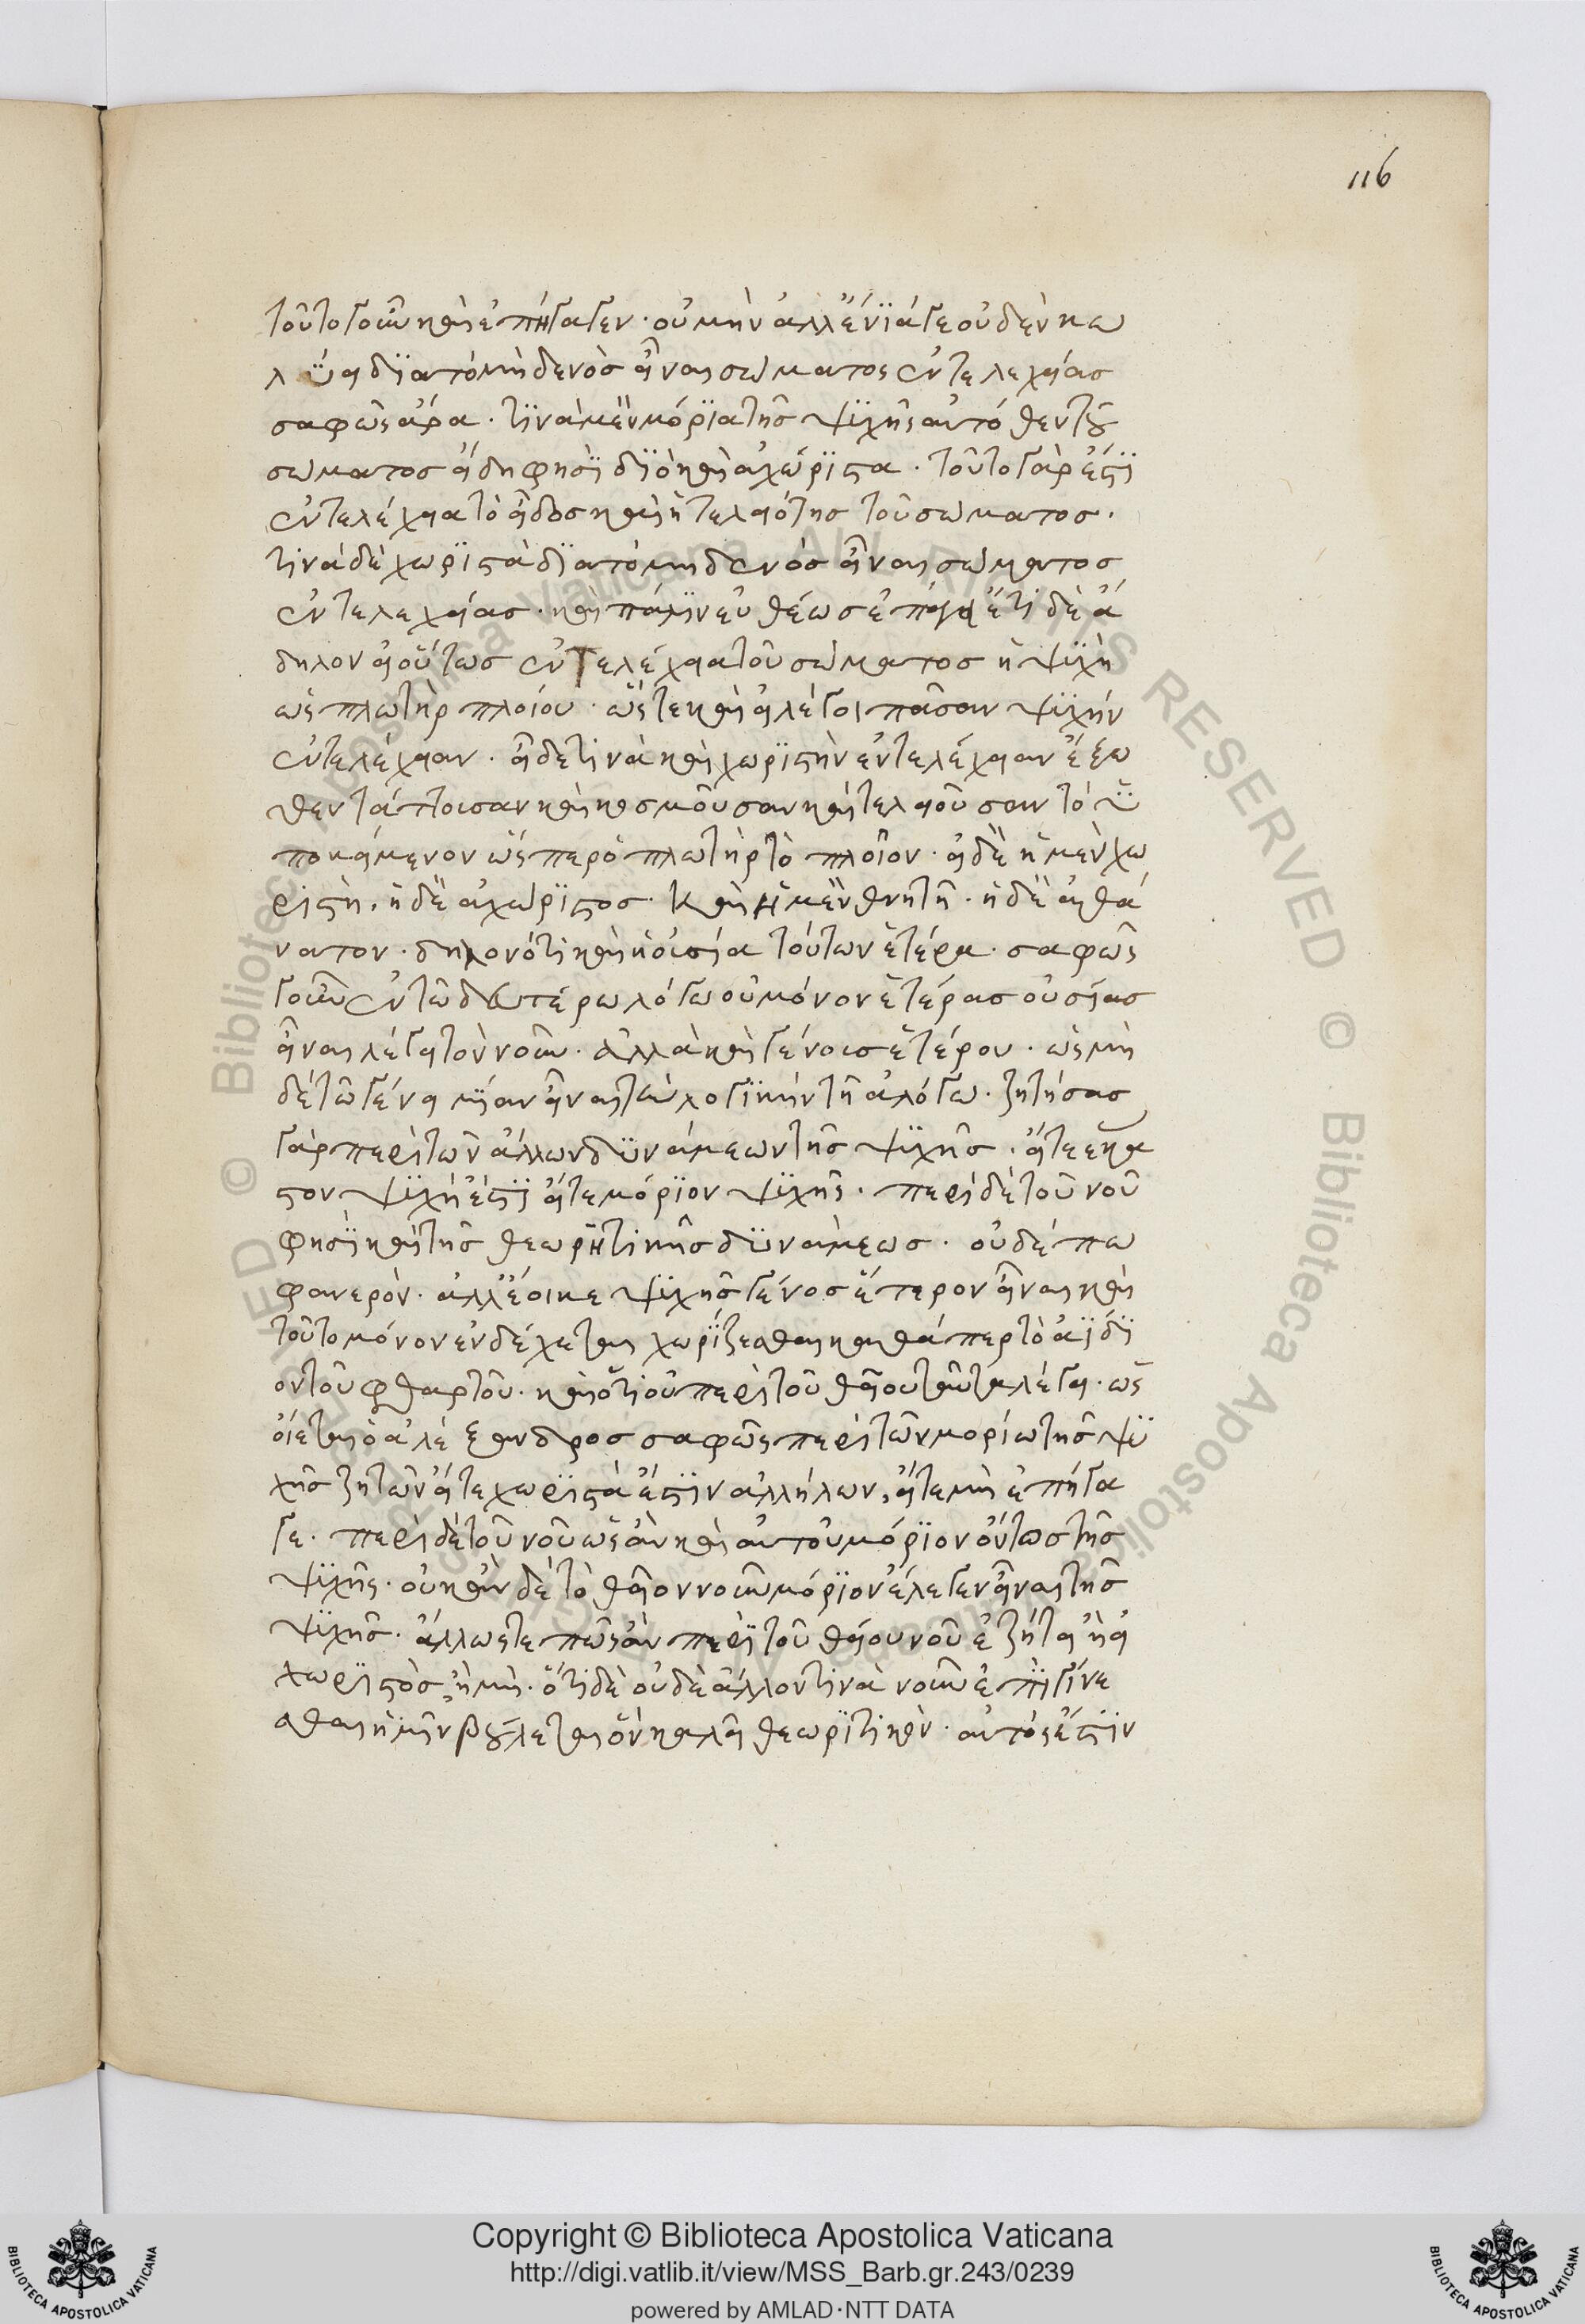 116
τοῦτο γοῦν καὶ ἐπήγαγεν· οὐ μὴν ἀλλ' ἔνϊά γε οὐδὲν κω
λύει δϊὰ τὸ μηδενὸς εἶναι σώματος ἐντελεχείας
σαφῶς ἄρα· τϊνὰ μὲν μόρϊα τῆς ψϋχῆς αὐτόθεν τοῦ
σώματος εἴδη φησῒ δϊὸ καὶ ἀχώρϊστα· τοῦτο γάρ ἐστϊ
ἐντελέχεια τὸ εἶδος καὶ ἡ τελειότης τοῦ σώματος·
τινὰ δὲ χωρϊστὰ δϊὰ τὸ μηδενὸς εἶναι σώματος
ἐντελεχείας· καὶ πάλϊν εὐθέως ἐπάγει ἔτι δὲ ἄ
δηλον εἰ οὕτως ἐντελέχεια τοῦ σώματος ἡ ψϋχὴ
ὡς πλωτὴρ πλοίου· ὥστε καὶ εἰ λέγοι πᾶσαν ψϋχήν
ἐντελέχειαν· εἶδε τινὰ καὶ χωρϊστὴν ἐντελέχειαν ἔξω
θεν τάττουσαν καὶ κοσμοῦσαν καὶ τελειοῦσαν τὸ ὑ
ποκείμενον ὥσπερ ὁ πλωτὴρ τὸ πλοῖον· εἰ δὲ ἡ μὲν χω
ριστὴ, ἡ δὲ ἀχώρϊστος· καὶ ἡ μὲν θνητὴ· ἡ δὲ ἀθά
νατον· δηλονότι καὶ ἡ οὐσία τούτων ἑτέρα· σαφῶς
γοῦν ἐν τῶ δευτέρω λόγω οὐ μόνον ἑτέρας οὐσίας
εἶναι λέγει τὸν νοῦν· ἀλλὰ καὶ γένους ἑτέρου· ὡς μὴ
δὲ τῶ γένει μίαν εἶναι τὴν λογϊκὴν τῆ ἀλόγω· ζητήσας
γὰρ περὶ τῶν ἄλλων δϋνάμεων τῆς ψϋχῆς· εἴτε ἕκα
στον ψϋχή ἐστϊ εἴτε μόρϊον ψϋχῆς· περὶ δὲ τοῦ νοῦ
φησῒ καὶ τῆς θεωρητικῆς δϋνάμεως· οὐδέπω
φανερὸν· ἀλλ' ἔοικε ψϋχῆς γένος ἕτερον εἶναι καὶ
τοῦτο μόνον ἐνδέχεται χωρΐζεσθαι καθάπερ τὸ ἀΐδϊ
ον τοῦ φθαρτοῦ· καὶ ὅτι οὐ περὶ τοῦ θείου ταῦτα λέγει· ὡς
οἴεται ὁ ἀλέξανδρος σαφῶς περὶ τῶν μορίω τῆς ψϋ
χῆς ζητῶν εἴτε χωρϊστά ἐστϊν ἀλλήλων, εἴτε μὴ ἐπήγα
γε· περὶ δὲ τοῦ νοῦ ὡς ἂν καὶ αὐτοῦ μόρϊον ὄντος τῆς
ψϋχῆς· οὐκ ἂν δὲ τὸ θεῖον νοῦν μόρϊον ἔλεγεν εἶναι τῆς
ψϋχῆς· ἄλλως τε πῶς ἂν περὶ τοῦ θείου νοῦ ἐζήτει ἢ εἰ
χωρϊστὸς ἢ μὴ· ὅτι δὲ οὐδὲ ἄλλον τινὰ νοῦν ἐπϊγίνε
σθαι ἡμῖν βούλεται ὃν καλεῖ θεωρϊτικὸν· αὐτός ἐστϊν